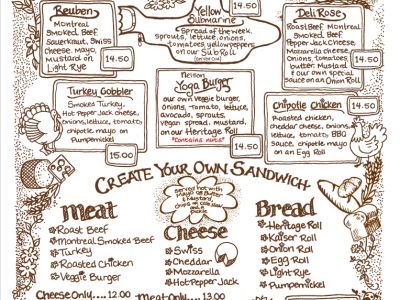 Reuben
Montreal
Smoked Beef
Sauerkraut, Swiss
Cheese, Mayo,
Mustard on
Light Rye
14.50
Yellow
Submarine
Spread of the week,
sprouts, lettuce, onions,
tomatoes, yellow peppers
on our Sub Roll
14.50
Deli Rose
Roast Beef, Montreal
Smoked Beef,
Pepper Jack Cheese,
Mozzarella cheese,
Onions, tomatoes,
butter, Mustard
& our own special
sauce on an Onion Roll
14.50
Turkey Gobbler
Smoked Turkey,
Hot Pepper Jack cheese,
onions, lettuce, tomato,
chipotle mayo on
Pumpernickel
15.00
Nelson
Yoga Burger
our own veggie burger,
onions, tomato, lettuce,
avocado, sprouts,
vegan spread, mustard,
on our Heritage Roll
*contains nuts*
14.50
Chipotle Chicken
Roasted chicken,
cheddar cheese, onions,
lettuce, tomato, BBQ
sauce, chipotle mayo
on an Egg Roll
14.50
Create Your Own Sandwich
Served hot with
Mayo or Butter
& Mustard,
chips or coleslaw
& a Pickle
Meat
Roast Beef
Montreal Smoked Beef
Turkey
Roasted Chicken
Veggie Burger
Cheese
Swiss
Cheddar
Mozzarella
Hot Pepper Jack
Bread
Heritage Roll
Kaiser Roll
Onion Roll
Egg Roll
Light Rye
Pumpernickel
Cheese Only.... 12.00
Meat Only.... 13.00